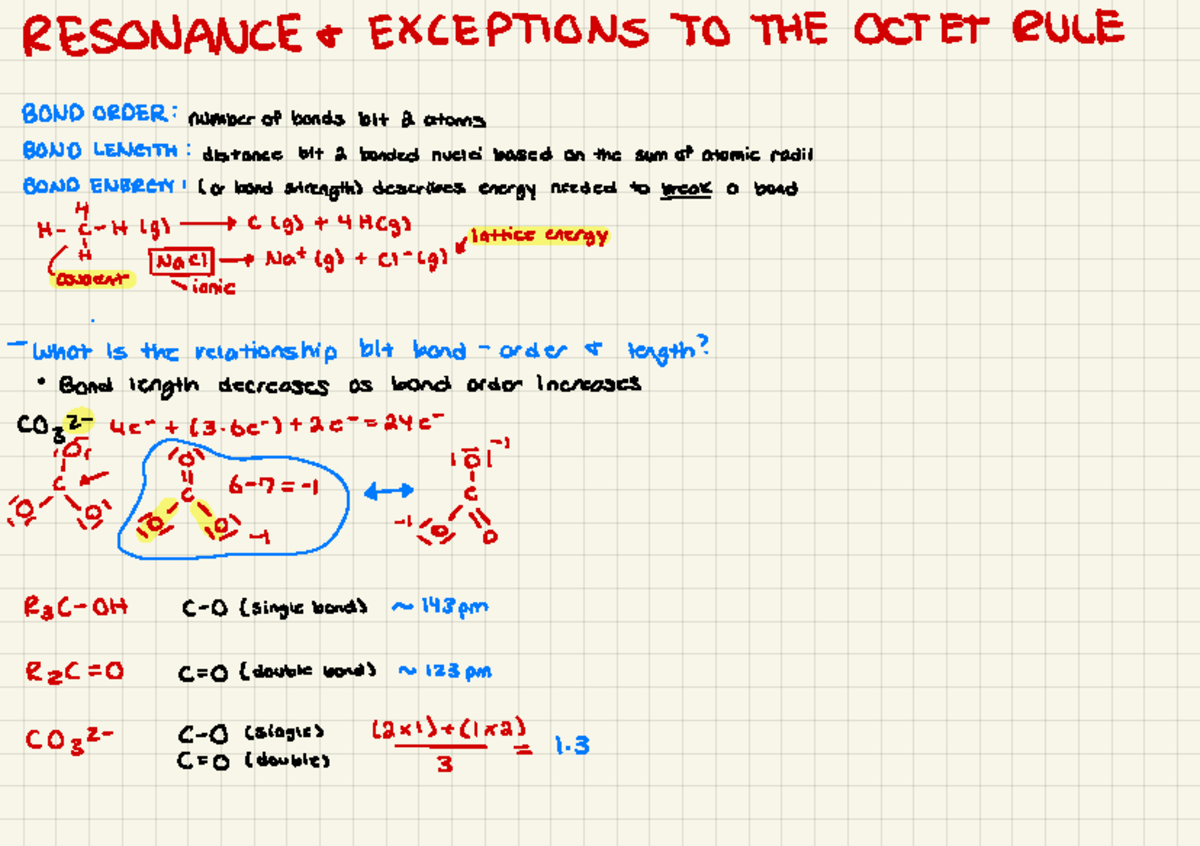 RESONANCE & EXCEPTIONS TO THE OCTET RULE
BOND ORDER: number of bonds b/t 2 atoms
BOND LENGTH: distance b/t 2 bonded nuclei based on the sum of atomic radii
BOND ENERGY: (or bond strength) describes energy needed to break a bond
H
H-C-H (g) → C (g) + 4 H(g)
H
lattice energy
NaCl → Na⁺ (g) + Cl⁻ (g)
covalent
ionic
- What is the relationship b/t bond-order & length?
• Bond length decreases as bond order increases
CO₃²⁻ 4e⁻ + (3·6e⁻) + 2e⁻ = 24e⁻
O O 6-7=-1 ↔ |O|⁻¹
C C C
O O O O -1 -1 O O
R₃C-OH C-O (single bond) ~ 143pm
R₂C=O C=O (double bond) ~ 123pm
CO₃²⁻ C-O (single) (2x1)+(1x2) = 1.3
C=O (double) 3